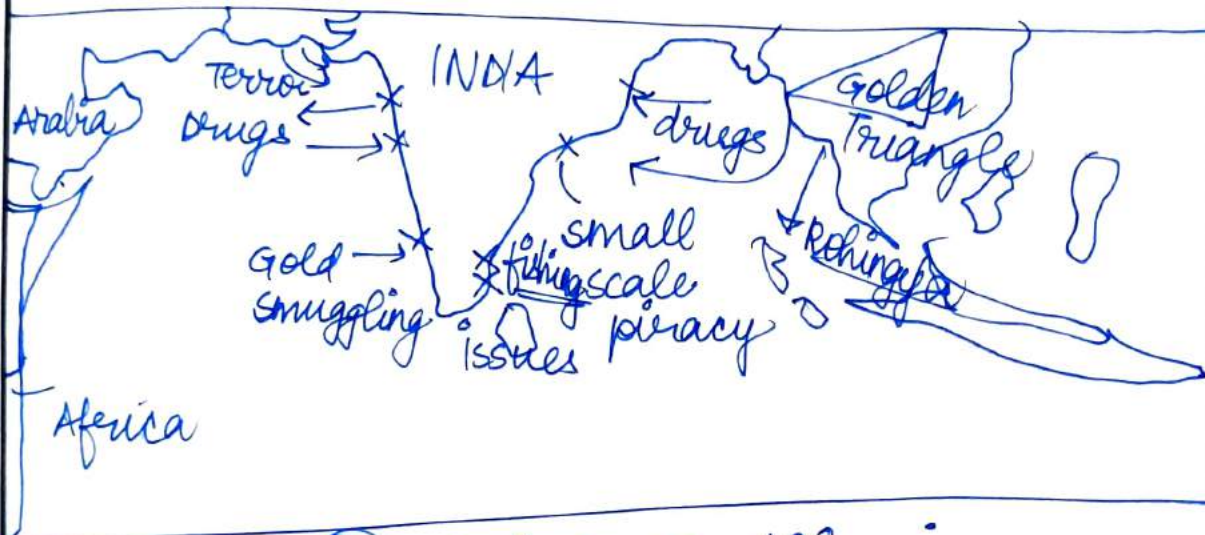 INDIA
Terror
Drugs
Arabia
drugs
Golden
Triangle
Gold
smuggling
fishing
issues
small
scale
piracy
Rohingya
Africa